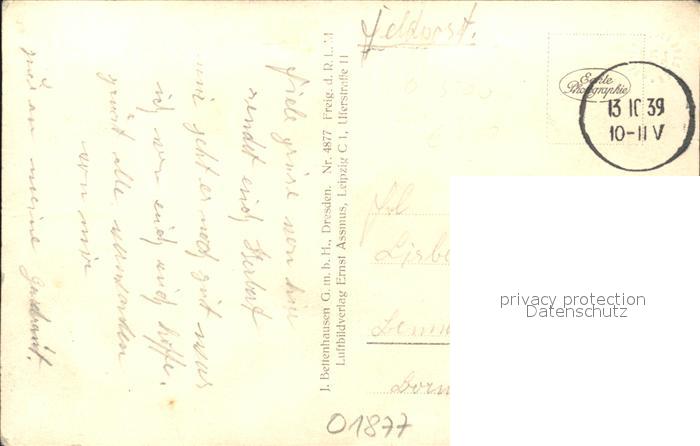 Feldpost.
Echte
Photographie
13 10 39
10-11 V
Viele grüse von hier
sendet euch Herbert
mir geht es noch gut was
ich von euch auch hoffe.
grüst alle verwandten
von mir
und an meine
J. Bettenhausen G.m.b.H., Dresden. Nr. 4877 Freig. d. R.L.M
Luftbildverlag Ernst Assmus, Leipzig C 1, Uferstraße 11
privacy protection
Datenschutz
O1877